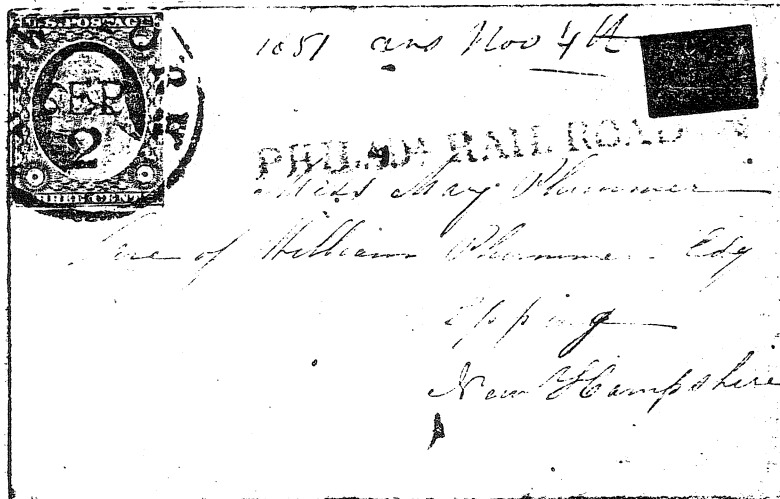 U.S. POSTAGE
SEP
2
THREE CENTS
1851 ans Nov 4th
PHILADA RAIL ROAD
Miss May Plummer
Care of William Plummer Esq
Epping
New Hampshire